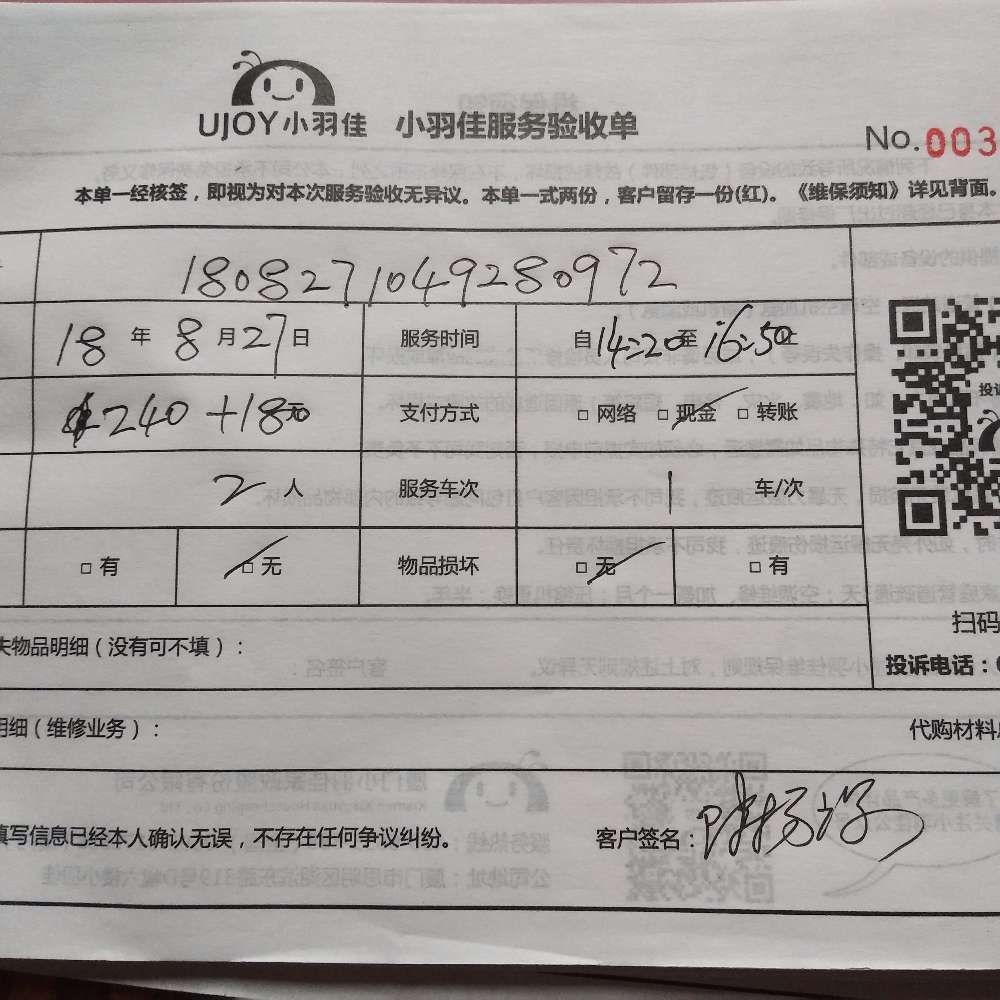 UJOY小羽佳 小羽佳服务验收单
No.003
本单一经核签，即视为对本次服务验收无异议。本单一式两份，客户留存一份(红)。《维保须知》详见背面。
1808271049280972
18 年 8 月 27 日 服务时间 自14:20至16:50止
240+18元 支付方式 □ 网络 □ 现金 □ 转账
2 人 服务车次 1 车/次
□ 有 □ 无 物品损坏 □ 无 □ 有
失物品明细（没有可不填）：
扫码
投诉电话：
明细（维修业务）：
代购材料
填写信息已经本人确认无误，不存在任何争议纠纷。
客户签名：